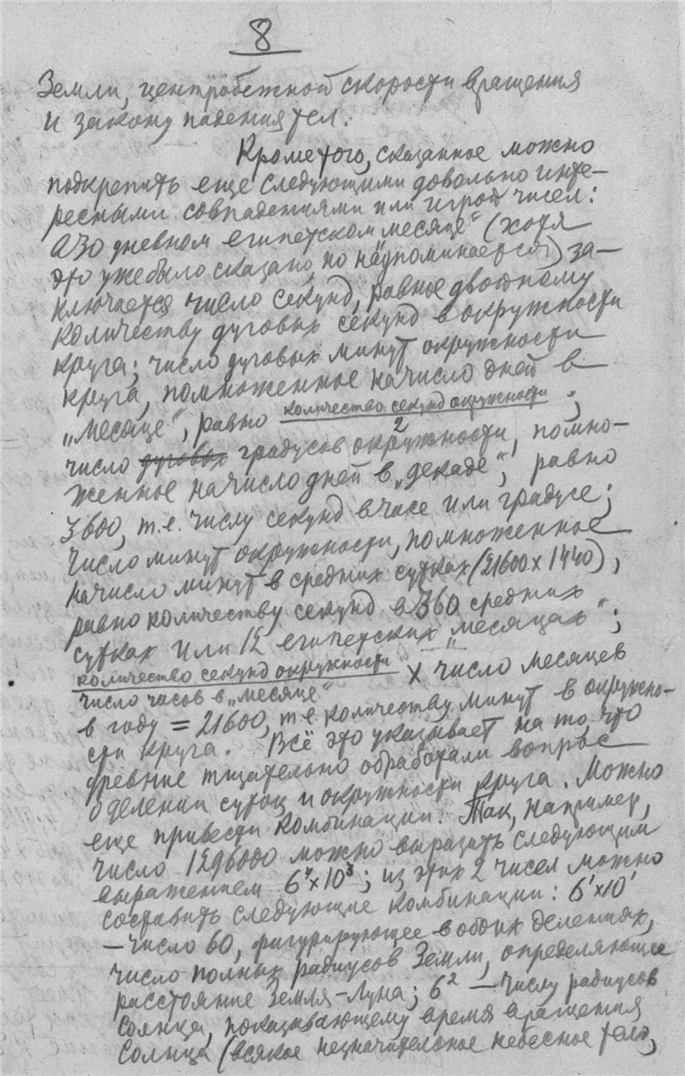 8
Земли, центробежной скорости вращения
и закону падения тел.
Кроме того, сказанное можно
подкрепить еще следующими довольно инте-
ресными совпадениями или игрой чисел:
в 30 дневном египетском месяце" (хотя
это уже было сказано, но напоминается) за-
ключается число секунд, равное двойному
количеству дуговых секунд в окружности
круга; число дуговых минут окружности
круга, помноженное на число дней в
„месяце", равно количество секунд окружности ;
2
число дуговых градусов окружности, помно-
женное на число дней в „декаде", равно
3600, т.е. числу секунд в часе или градусе;
число минут окружности, помноженное
на число минут в средних сутках (21600 x 1440),
равно количеству секунд в 360 средних
сутках или 12 египетских „месяцах";
количество секунд окружности x число месяцев
число часов в „месяце"
в году = 21600, т.е. количеству минут в окружно-
сти круга. Всё это указывает на то, что
древние тщательно обработали вопрос
о делении суток и окружности круга. Можно
еще привести комбинации. Так, например,
число 1296000 можно выразить следующим
выражением 6⁴x10³; из этих 2 чисел можно
составить следующие комбинации: 6'x10'
— число 60, фигурирующее в обоих делениях,
число полных радиусов Земли, определяющее
расстояние Земля-Луна; 6² — числу радиусов
Солнца, показывающему время вращения
Солнца (всякое незначительное небесное тело,